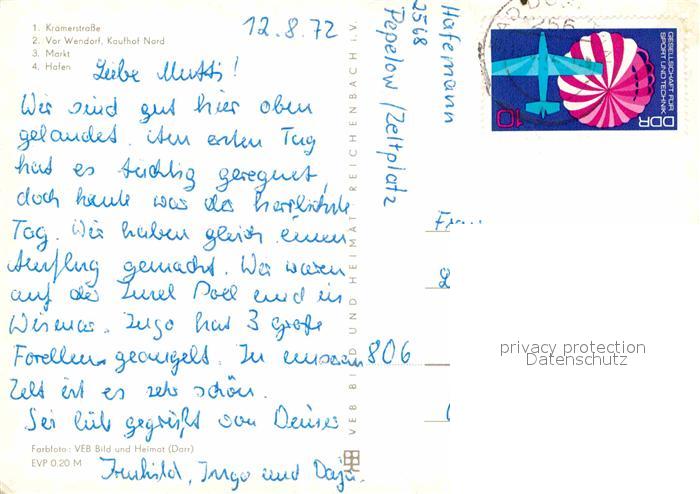 1. Krämerstraße
2. Vor Wendorf, Kaufhof Nord
3. Markt
4. Hafen
12.8.72
Liebe Mutti!
Wir sind gut hier oben
gelandet. Am ersten Tag
hat es tüchtig geregnet
doch heute war der herrlichste
Tag. Wir haben gleich einen
Ausflug gemacht. Wir waren
auf der Insel Poel und in
Wismar. Ingo hat 3 große
Forellen geangelt. In unserem
Zelt ist es sehr schön.
Sei lieb gegrüßt von Deiner
Irmhild, Ingo und
Farbfoto: VEB Bild und Heimat (Darr)
EVP 0,20 M
VEB BILD UND HEIMAT REICHENBACH I.V.
Hafemann
2568
Pepelow/Zeltplatz
DDR
GESELLSCHAFT FÜR
SPORT UND TECHNIK
10
256
Fr
806
privacy protection
Datenschutz